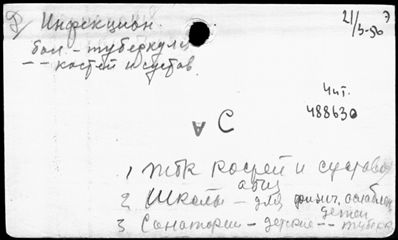 Инфекцион.
21/3-56 г
бол. - туберкулез
- - костей и суставов.
Чит.
488630
А С
1 тбк костей и суставов
общ
2 Школы - для физич. ослаблен
детей
3 Санатории - детские - - туберк